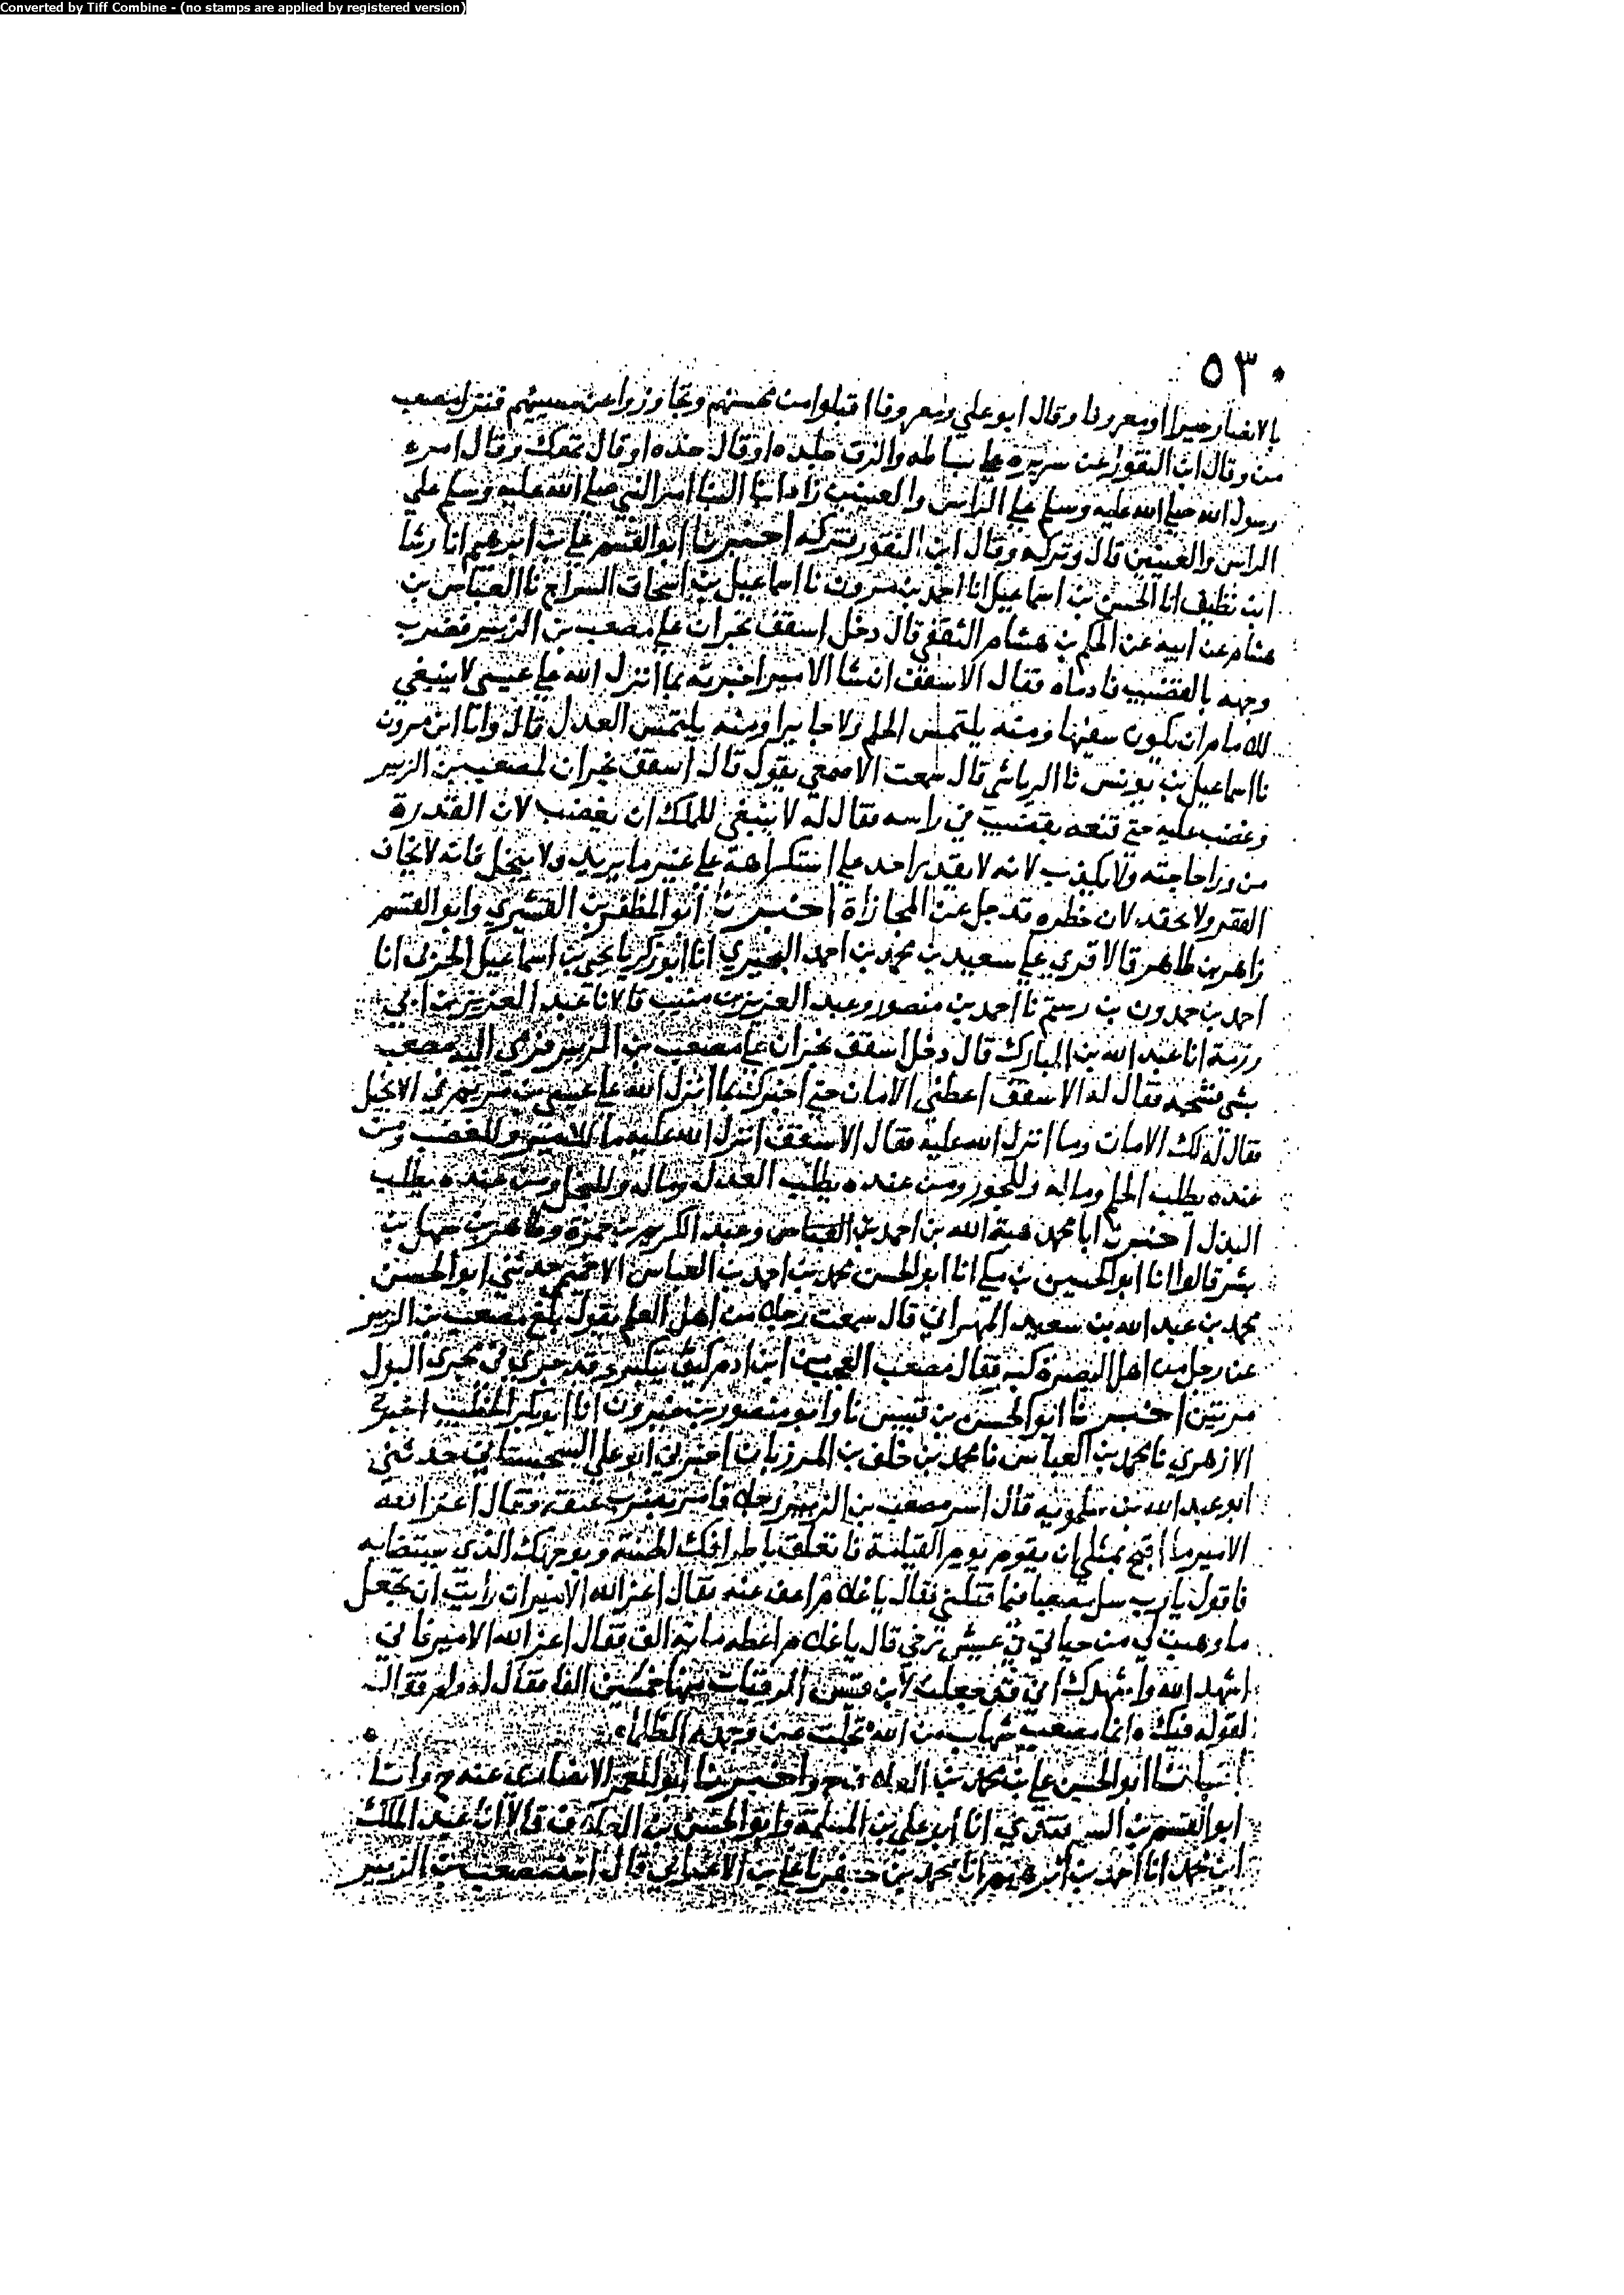 Converted by Tiff Combine - (no stamps are applied by registered version)
٥٣٠
بالانصار خيرا او معروفا وقال ابو علي ومعروفا اقبلوا من محسنهم وتجاوزوا عن مسيئهم فنزل مصعب
من وقال ابن النقور عن سريره على بساطه والزق جلده او قال خده او قال تمعك وقال امر
رسول الله صلى الله عليه وسلم على الراس والعينين زاد ابنا البنا امر النبي صلى الله عليه وسلم علي
الراس والعينين قال وتركه وقال ابن النقور نتركه اخبرنا ابو القسم علي بن ابرهيم انا رشا
ابن نظيف انا الحسن بن اسماعيل انا احمد بن مرون نا اسماعيل بن اسحاق السراج نا العباس بن
هشام عن ابيه عن الحكم بن هشام الثقفي قال دخل اسقف نجران على مصعب بن الزبير فضرب
وجهه بالقضيب فادماه فقال الاسقف ان شا الامير اخبرته بما انزل الله على عيسى لا ينبغي
للامام ان يكون سفيها ومنه يلتمس الحلم ولا جايرا ومنه يلتمس العدل قال وانا ابن مرون
نا اسماعيل بن يونس نا الرياشي قال سمعت الاصمعي يقول قال اسقف نجران لمصعب بن الزبير
وغضب عليه حتى قنعه بقضيب في راسه فقال له لا ينبغي للملك ان يغضب لان القدرة
من ورا حاجته ولا يكذب لانه لا يقدر احد على استكراهه على غير ما يريد ولا يبخل فانه لا يخاف
الفقر ولا يحقد لان خطره قد جل عن المجازاة اخبرنا ابو المظفر بن القشيري وابو القسم
زاهر بن طاهر قالا قري على سعيد بن محمد بن احمد البحيري انا ابو زكريا يحيى بن اسماعيل الحربي انا
احمد بن حمدون بن رستم نا احمد بن منصور وعبد العزيز بن منيب قالا نا عبد العزيز بن ابي
رزمة انا عبد الله بن المبارك قال دخل اسقف نجران على مصعب بن الزبير فرمى اليه مصعب
بشي فشجه فقال له الاسقف اعطني الامان حتى اخبرك بما انزل الله على عيسى بن مريم في الانجيل
فقال له لك الامان وما انزل الله عليه فقال الاسقف انزل الله عليه ما للامير وللغضب ومن
عنده يطلب الحلم وماله وللجور ومن عنده يطلب العدل وماله وللبخل ومن عنده يطلب
البذل اخبرنا ابا محمد هبة الله بن احمد وعبد الكريم بن حمزة وطاهر بن سهل بن
بشر قالوا انا ابو الحسين بن مكي انا ابو الحسن محمد بن احمد بن العباس الاخميمي حدثني ابو الحسن
محمد بن عبد الله بن سعيد المهراني قال سمعت رجلا من اهل العلم يقول بلغ مصعب بن الزبير
عن رجل من اهل البصرة كبر فقال مصعب العجب من ابن ادم كيف يتكبر وقد جرى في مجرى البول
مرتين اخبرنا ابو الحسن بن قبيس نا وابو منصور بن خيرون انا ابو بكر الخطيب اخبرني
الازهري نا محمد بن العباس نا محمد بن خلف بن المرزبان اخبرني ابو علي السجستاني حدثني
ابو عبد الله بن سلمويه قال اسر مصعب بن الزبير رجلا فامر بضرب عنقه وقال اعز الله
الامير ما اقبح بمثلي ان يقوم يوم القيامة فاتعلق باطرافك الحسنة وبوجهك الذي يستضا به
فاقول يا رب سل مصعبا فيما قتلني فقال يا غلام اعف عنه فقال اعز الله الامير ان رايت ان تجعل
ما وهبت لي من حياتي في عيش رخي قال يا غلام اعطه ماية الف فقال اعز الله الامير فاني
اشهد الله واشهدك اني قد جعلت لابن قيس الرقيات منها خمسين الفا فقال له ولم قال
لقوله فيك انما مصعب شهاب من الله تجلت عن وجهه الظلماء
انبانا ابو الحسن علي بن محمد بن العلاف ح واخبرنا ابو المعمر الانصاري عنه ح وانا
ابو القسم بن السمرقندي انا ابو علي بن المسلمة وابو الحسن بن العلاف قالا انا عبد الملك
ابن محمد انا احمد بن ابرهيم انا محمد بن جعفر نا علي بن الاعرابي قال اخذ مصعب بن الزبير